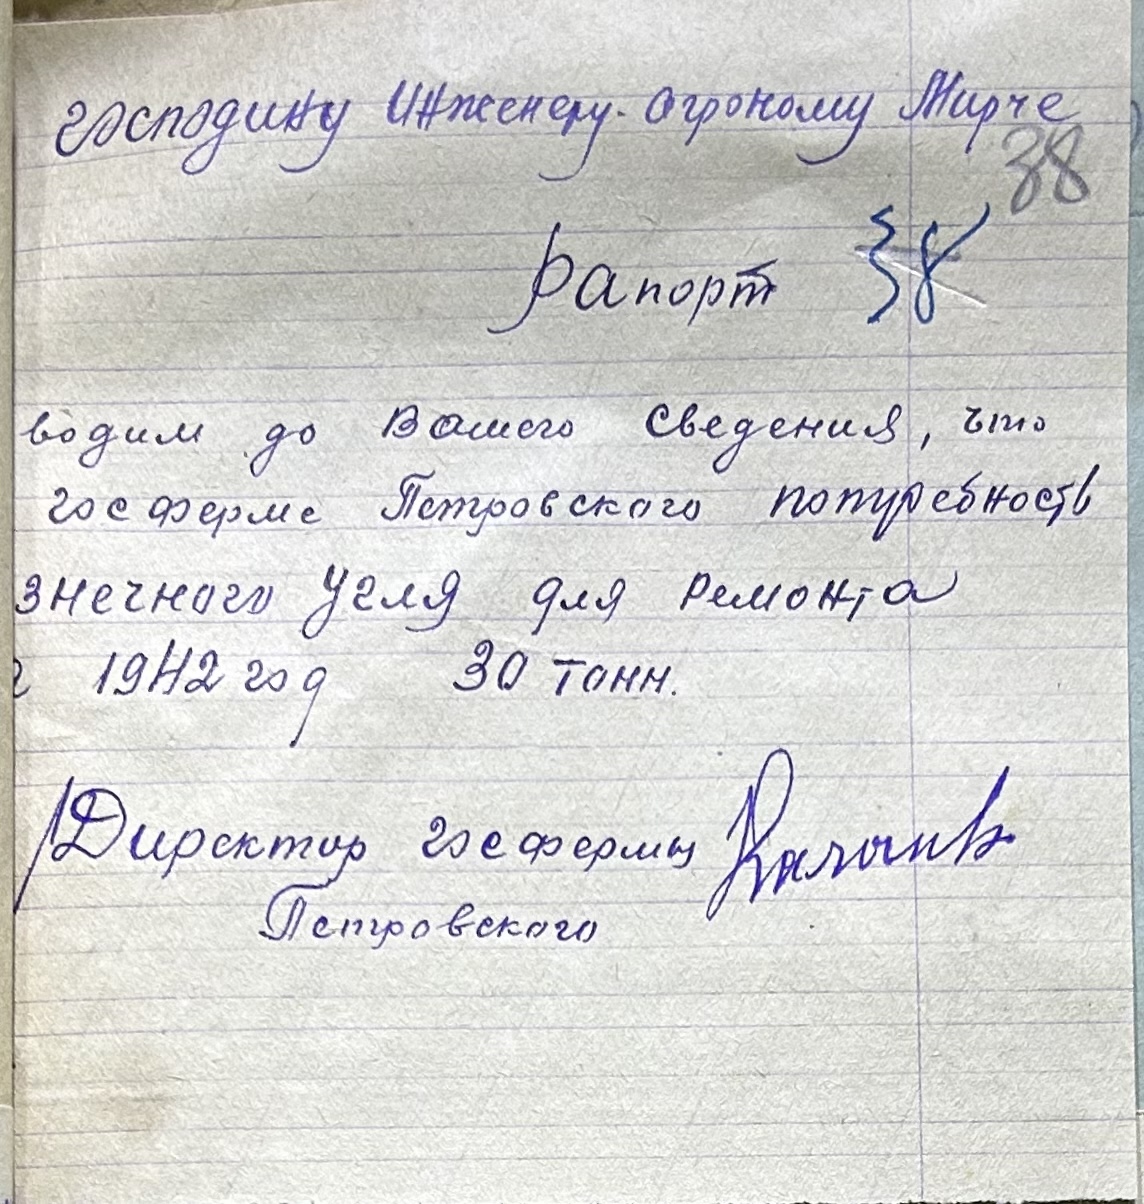 господину Инженеру-Агроному Мирче
38
Рапорт 38
водим до Вашего сведения, что
госферме Петровского потребность
знечного Угля для Ремонта
г 1942 год 30 тонн.
Директор госфермы
Петровского